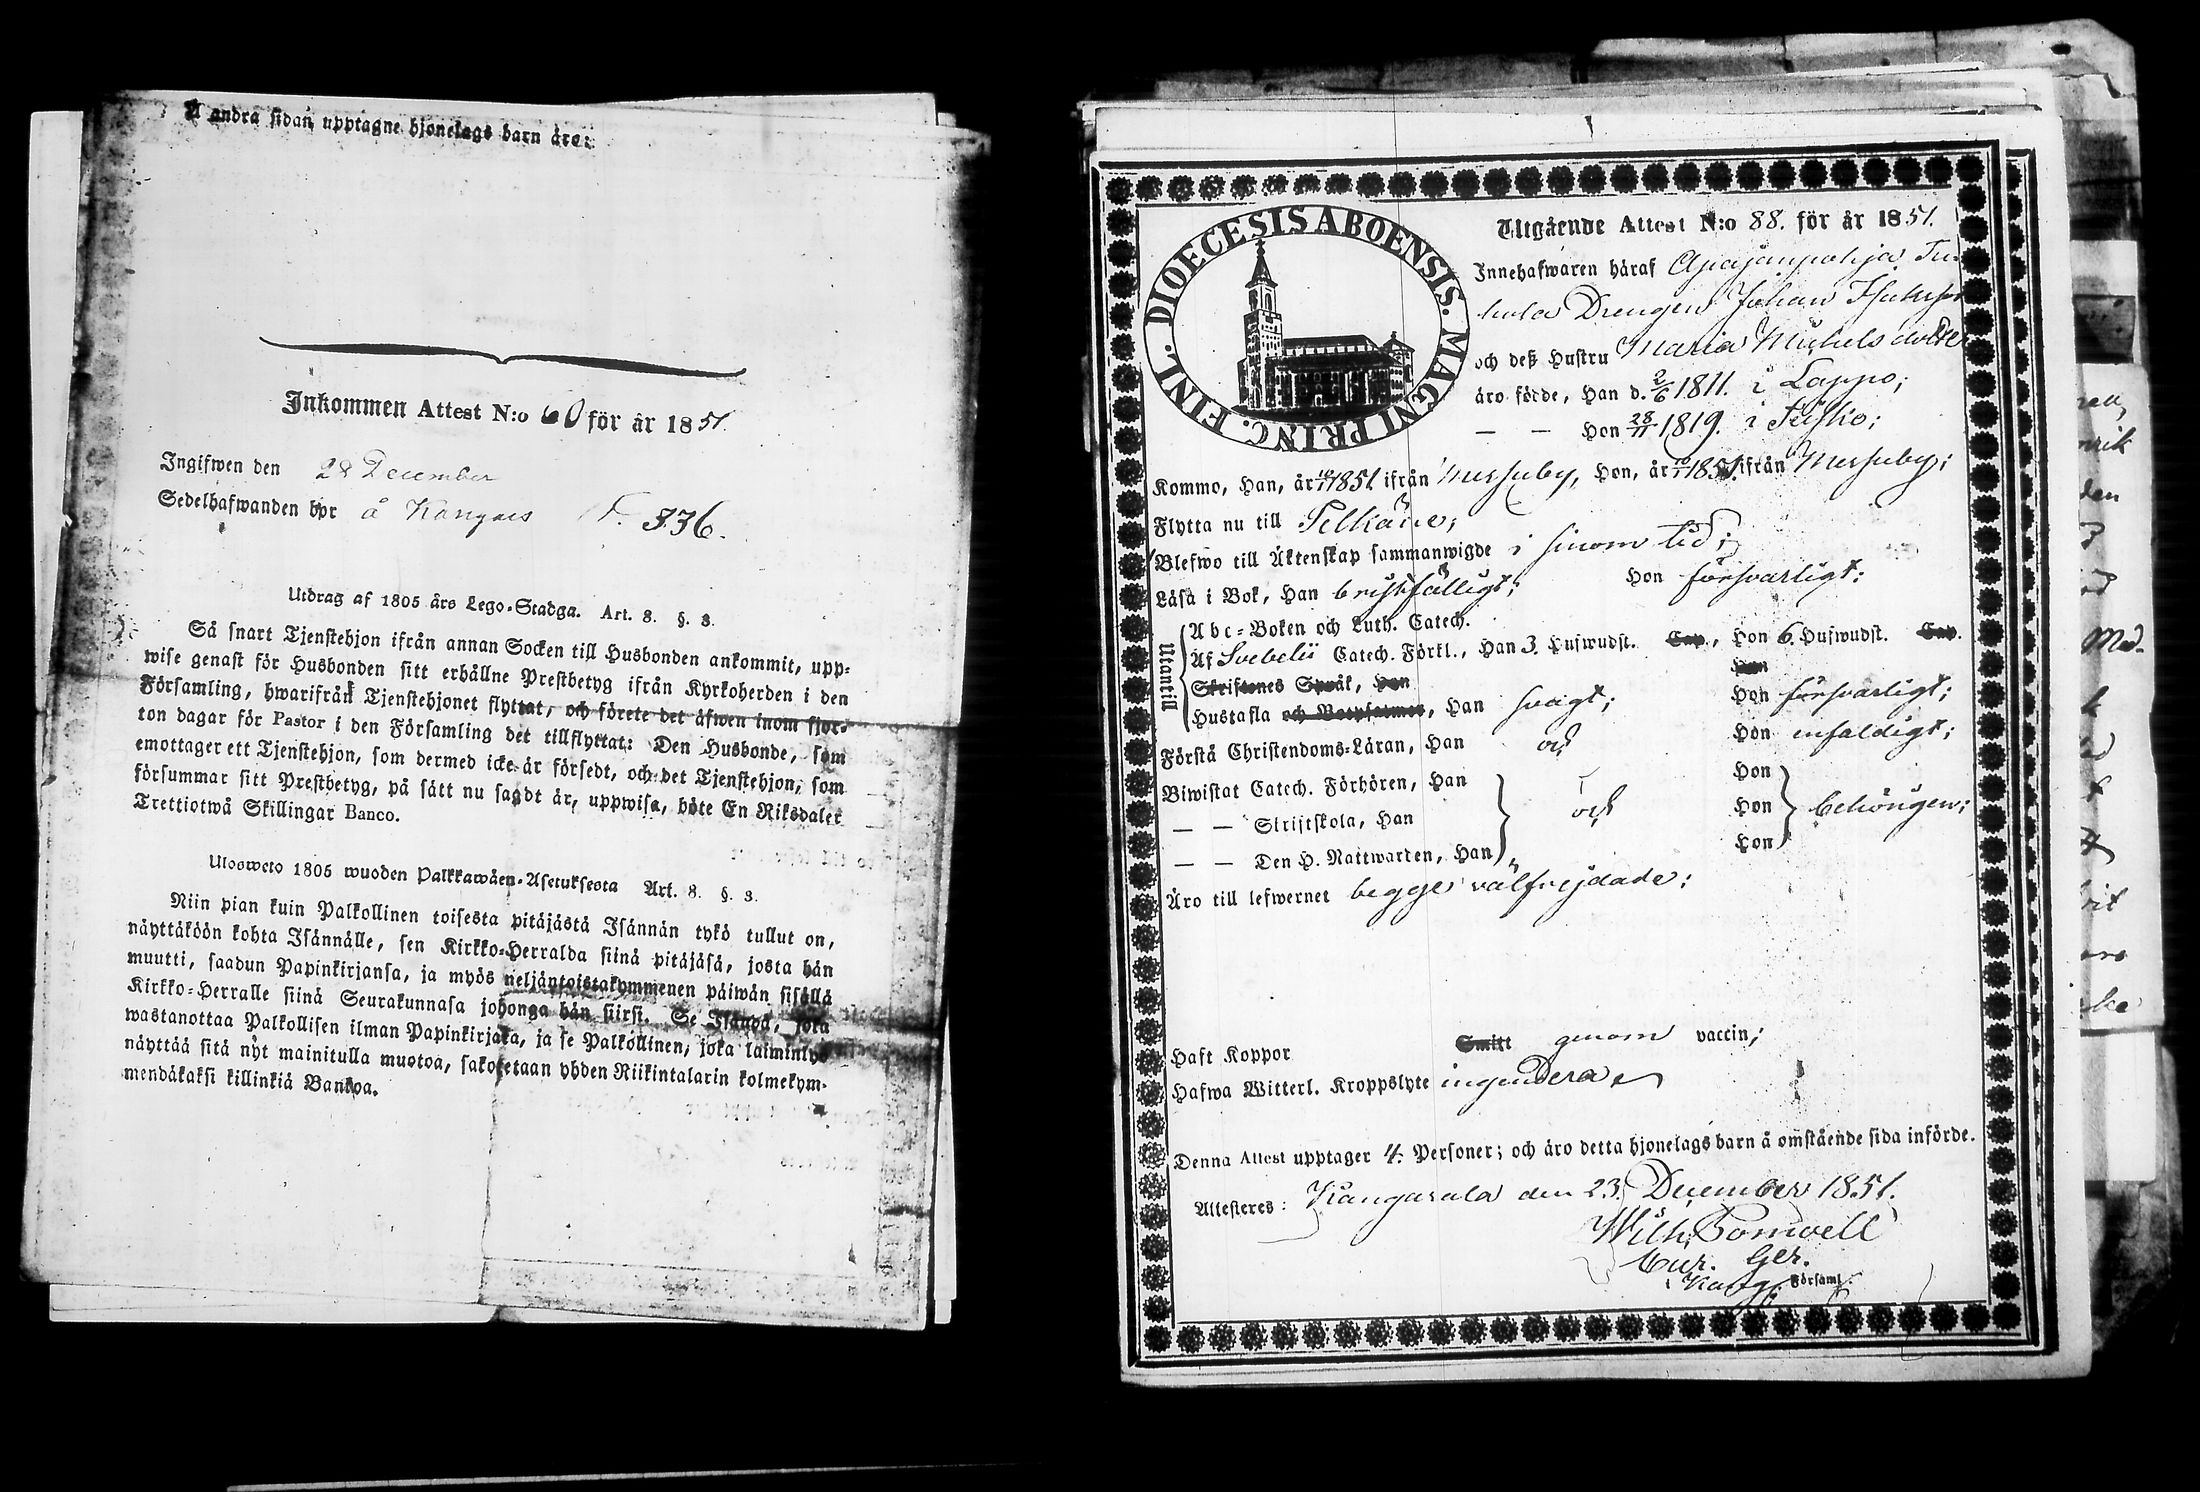 Å andra sidan upptagne hjonelags barn äro:
Inkommen Attest N:o 60 för år 1851.
Ingifwen den 28 December
Sedelhafwanden bor å Kangais F. 336.
Utdrag af 1805 års Lego-Stadga. Art. 8. §. 3.
Så snart Tjenstehjon ifrån annan Socken till Husbonden ankommit, upp-
wise genast för Husbonden sitt erhållne Prestbetyg ifrån Kyrkoherden i den
Församling, hwarifrån Tjenstehjonet flyttat, och förete det äfwen inom fjor-
ton dagar för Pastor i den Församling det tillflyttat: Den Husbonde, som
emottager ett Tjenstehjon, som dermed icke är försedt, och det Tjenstehjon, som
försummar sitt Prestbetyg, på sätt nu sagdt är, uppwisa, böte En Riksdaler
Trettiotwå Skillingar Banco.
Ulosweto 1805 wuoden Palkkawäen-Asetuksesta Art. 8. §. 3.
Niin pian kuin Palkollinen toisesta pitäjästä Isännän tykö tullut on,
näyttäköön kohta Isännälle, sen Kirkko-Herralda siinä pitäjäsä, josta hän
muutti, saadun Papinkirjansa, ja myös neljäntoistakymmenen päiwän sisällä
Kirkko-Herralle siinä Seurakunnasa johonga hän siirsi. Se Isändä, joka
wastanottaa Palkollisen ilman Papinkirjata, ja se Palkollinen, joka laiminlyö
näyttää sitä nyt mainitulla muotoa, sakotetaan yhden Riikintalarin kolmekym-
mendäkaksi killinkiä Bankoa.
DIOECESIS ABOENSIS. MAGNI PRINC. FINL.
Utgående Attest N:o 88. för år 1851.
Innehafwaren häraf Apajanpohja
Drengen Johan Isaksson
och deß Hustru Maria Michelsdotter
äro födde, Han d. 2/6 1811. i Lappo;
— — Hon 28/11 1819. i
Kommo, Han, år 1851 ifrån Messuby, Hon, år 1851. ifrån Messuby;
Flytta nu till Pelkäne;
Blefwo till Äktenskap sammanwigde i sinom tid;
Läsa i Bok, Han bristfälligt; Hon försvarligt;
Utantill
Abc-Boken och Luth. Catech.
Af Svebelii Catech. Förkl., Han 3. Hufwudst. Cap., Hon 6. Hufwudst. Cap.
Skriftenes Språk, Han Hon
Hustafla och Botpsalmer, Han svagt; Hon försvarligt;
Förstå Christendoms-Läran, Han och Hon enfaldigt;
Biwistat Catech. Förhören, Han Hon
— — Skriftskola, Han och Hon behörigen;
— — Den H. Nattwarden, Han Hon
Äro till lefwernet begge välfrejdade;
Haft Koppor Smitt genom vaccin;
Hafwa Witterl. Kroppslyte ingendera
Denna Attest upptager 4. Personer; och äro detta hjonelags barn å omstående sida införde.
Attesteres: Kangasala den 23. December 1851.
Wilh. Bonwell
Cur. Ger.
i Kang. Församl.